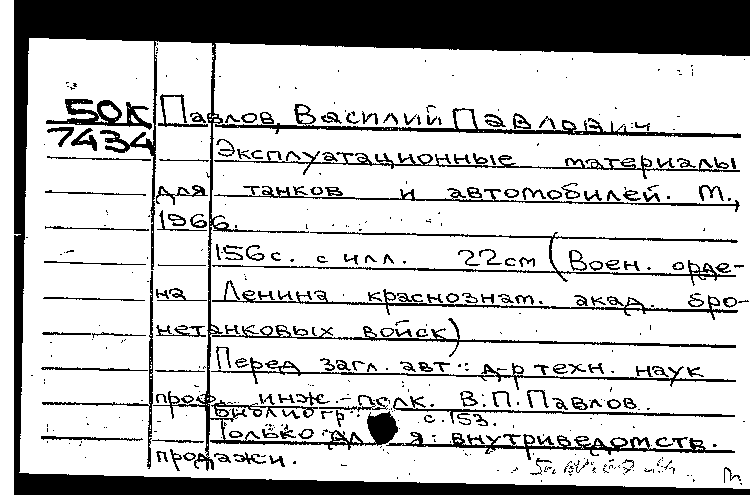 50К Павлов, Василий Павлович
7434 Эксплуатационные материалы
для танков и автомобилей. М.,
1966.
156с. с илл. 22см (Воен. орде-
на Ленина краснознам. акад. бро-
нетанковых войск)
Перед загл. авт.: д-р техн. наук
проф. инж.-полк. В.П. Павлов.
Библиогр: с.153.
Только для: внутриведомств.
продажи.